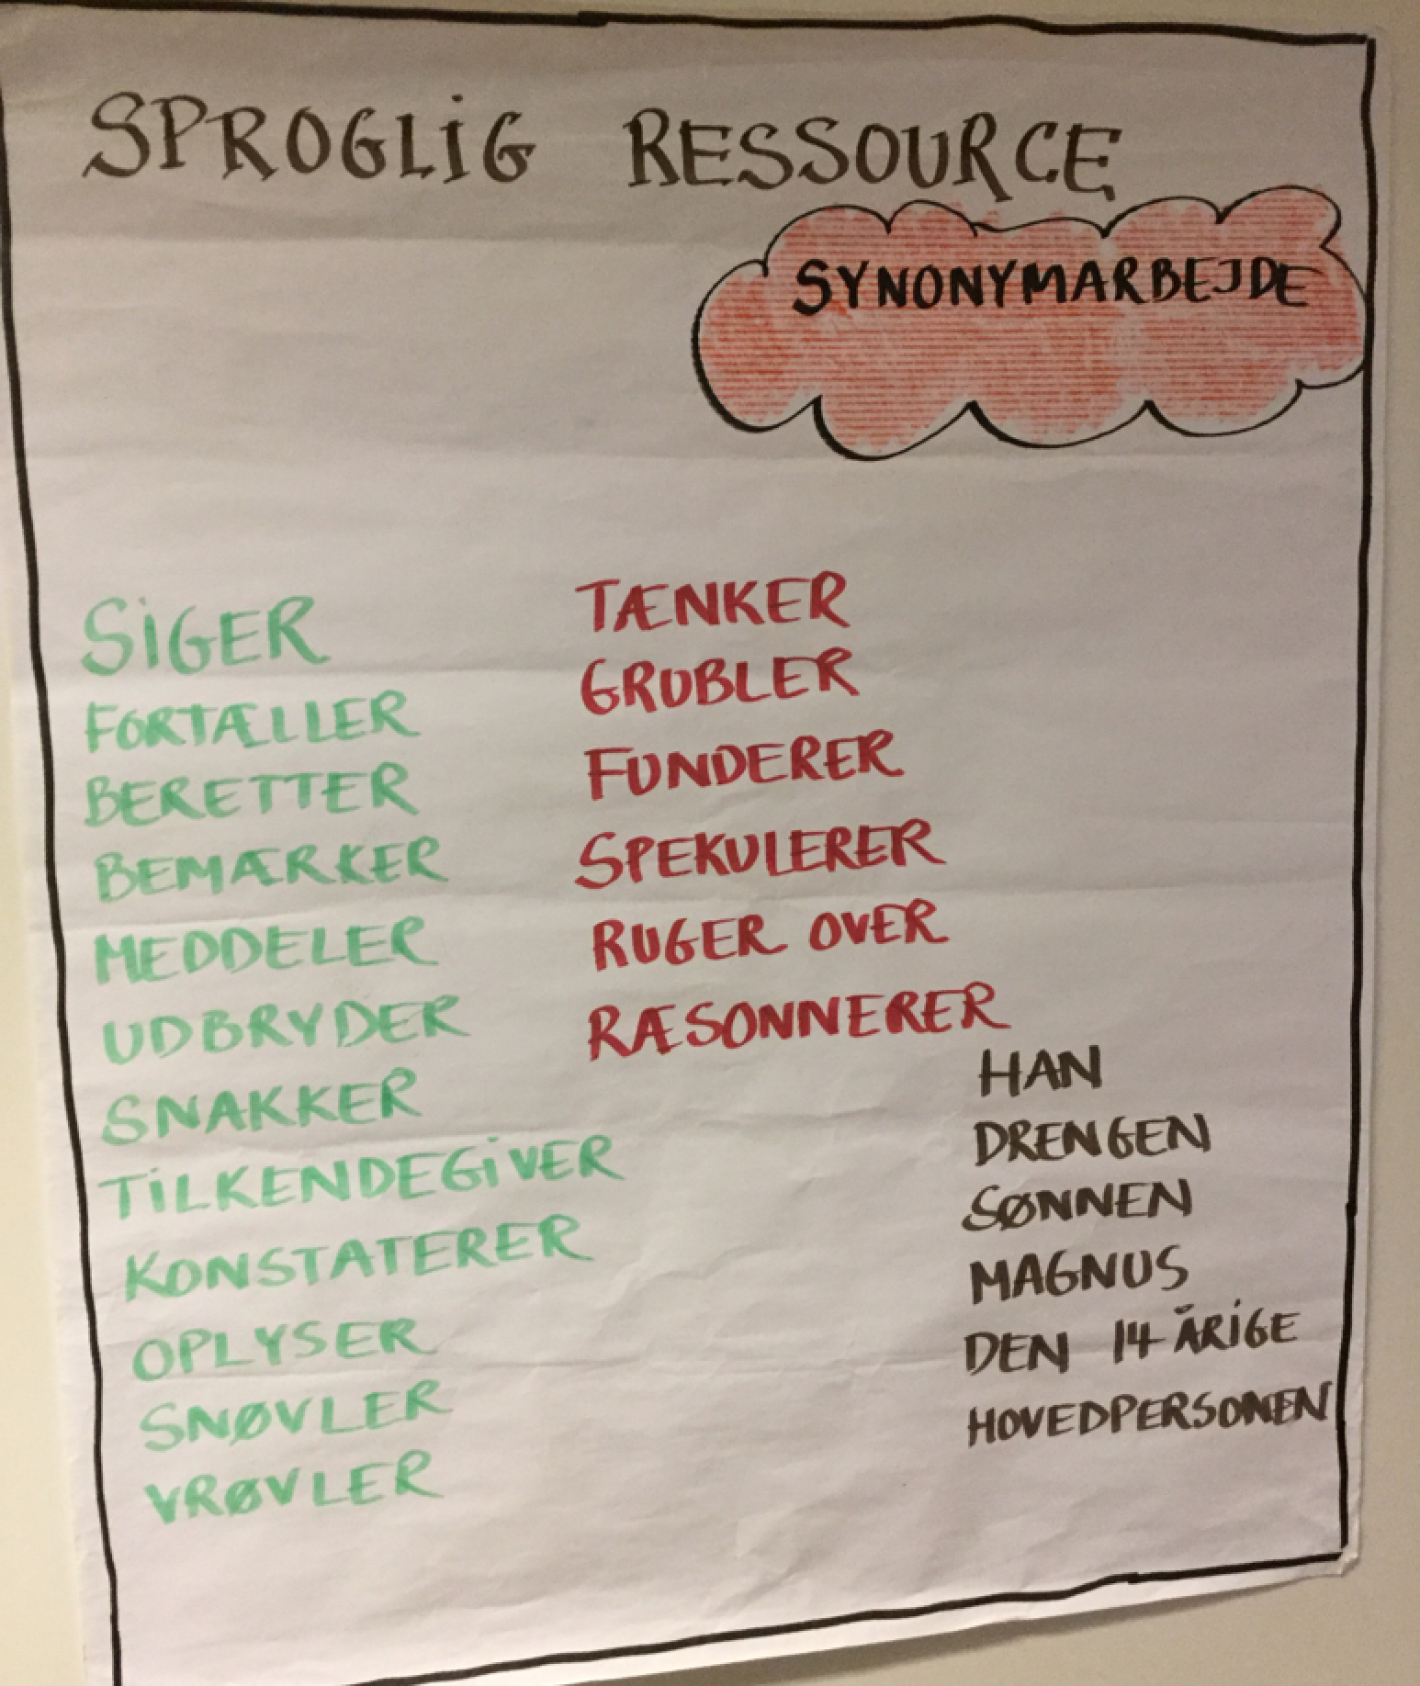 SPROGLIG RESSOURCE
SYNONYMARBEJDE
SIGER
FORTÆLLER
BERETTER
BEMÆRKER
MEDDELER
UDBRYDER
SNAKKER
TILKENDEGIVER
KONSTATERER
OPLYSER
SNØVLER
VRØVLER
TÆNKER
GRUBLER
FUNDERER
SPEKULERER
RUGER OVER
RÆSONNERER
HAN
DRENGEN
SØNNEN
MAGNUS
DEN 14 ÅRIGE
HOVEDPERSONEN